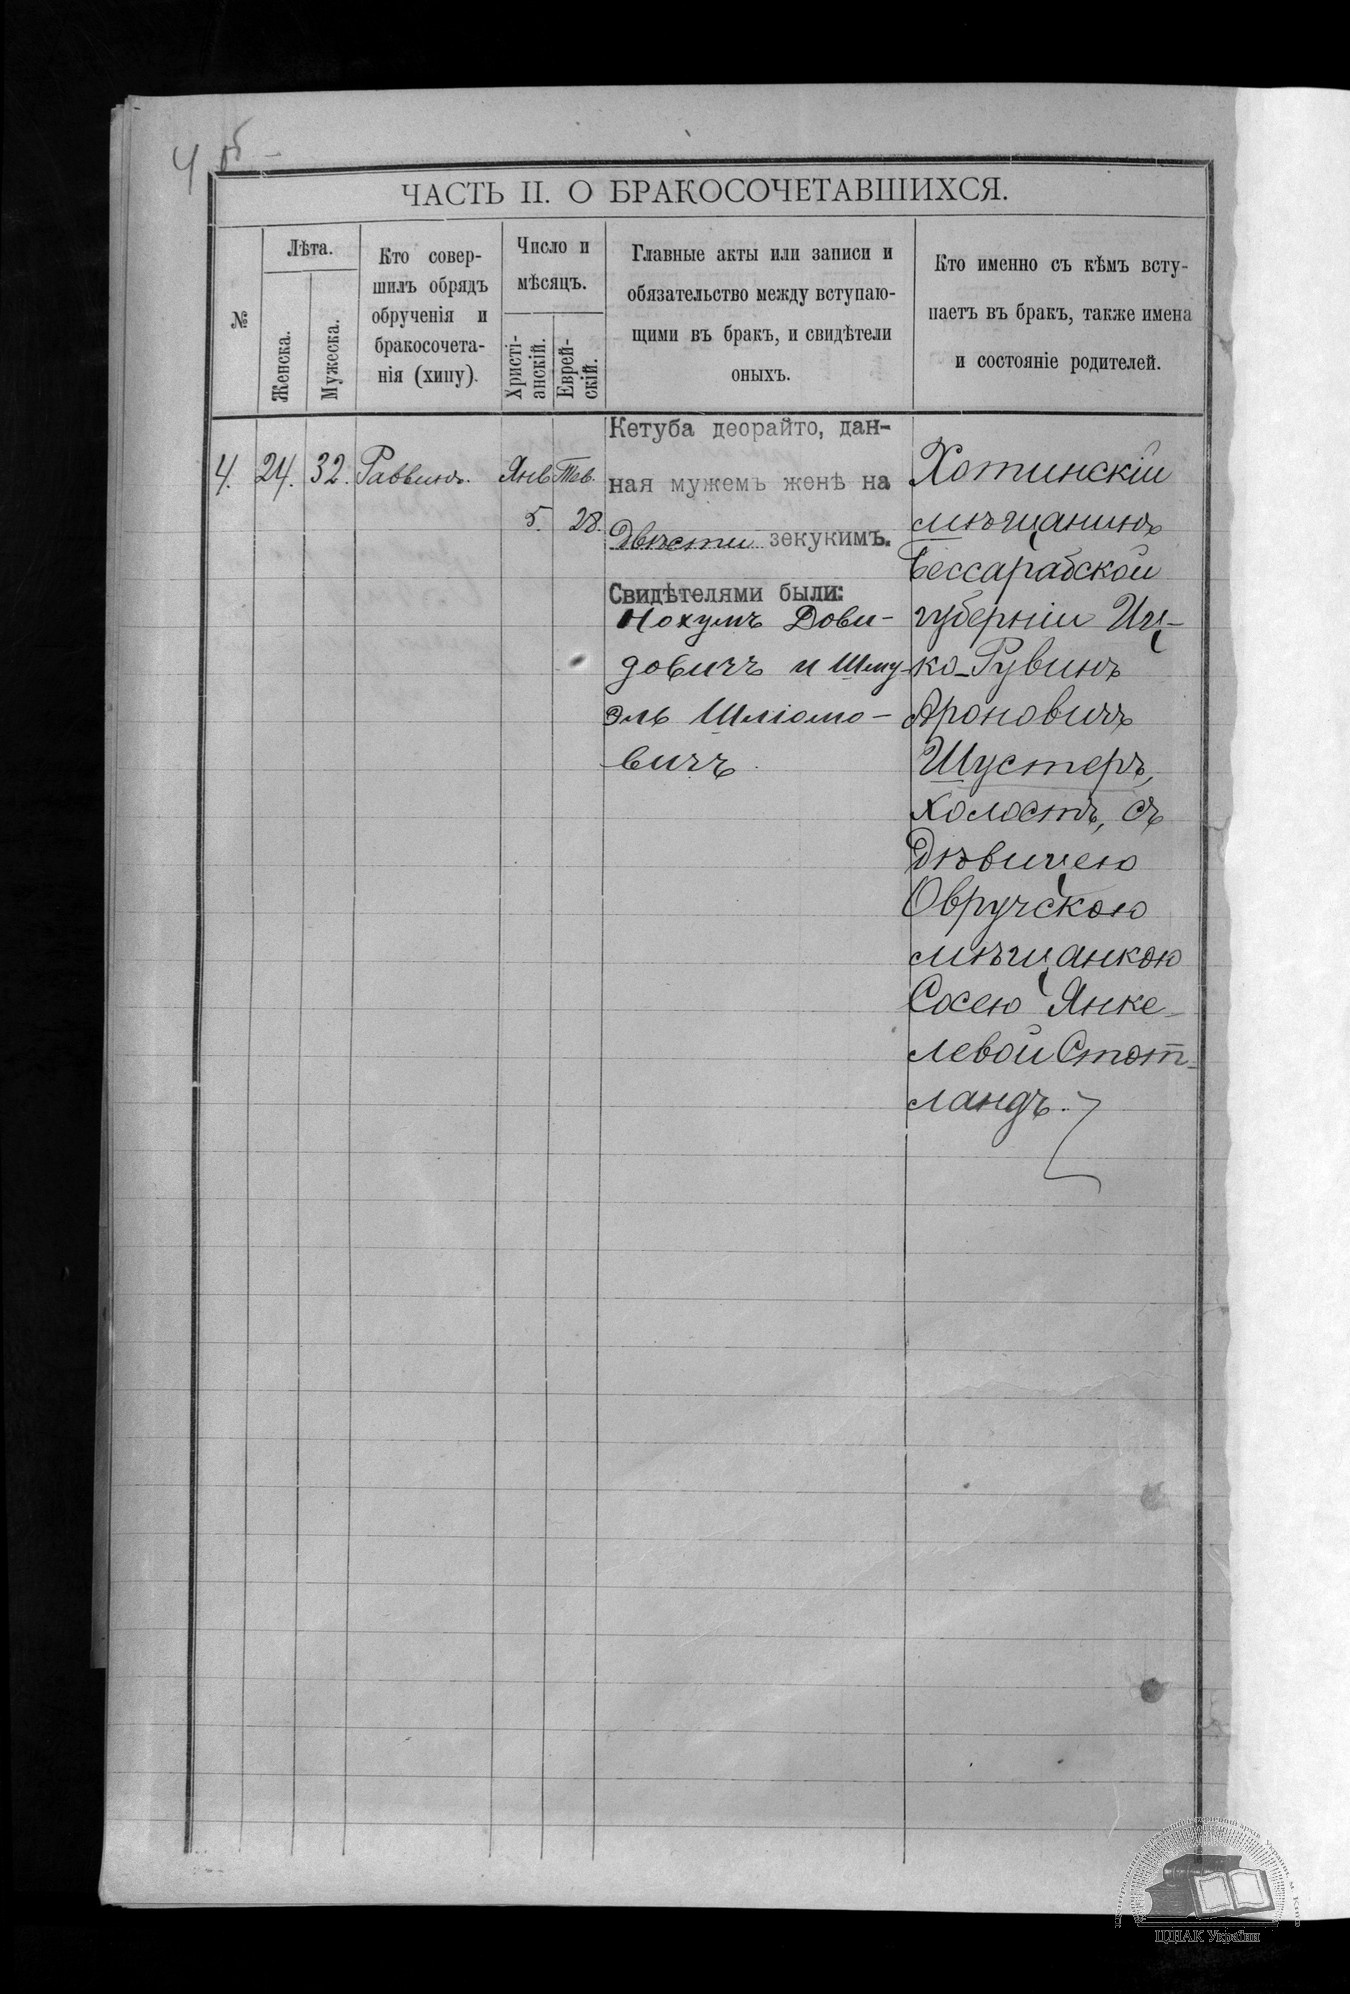 4 об
ЧАСТЬ II. О БРАКОСОЧЕТАВШИХСЯ.
№
Лѣта.
Женска.
Мужеска.
Кто совер-
шилъ обрядъ
обрученія и
бракосочета-
нія (хипу).
Число и
мѣсяцъ.
Христі-
анскій.
Еврей-
скій.
Главные акты или записи и
обязательство между вступаю-
щими въ бракъ, и свидѣтели
оныхъ.
Кто именно съ кѣмъ всту-
паетъ въ бракъ, также имена
и состояніе родителей.
4.
24.
32.
Раввинъ.
Янв
5.
Тев.
28.
Кетуба деорайто, дан-
ная мужемъ женѣ на
Двѣсти зекукимъ.
Свидѣтелями были:
Нохумъ Дови-
довичъ и Шму
эль Шліомо-
вичъ.
Хотинскій
мѣщанинъ
Бессарабской
губерніи Иц-
ко-Рувинъ
Ароновичъ
Шустеръ,
холостъ, съ
Дѣвицею
Овручскою
мѣщанкою
Сосею Янке-
левой Стот-
ландъ.
ЦДІАК України